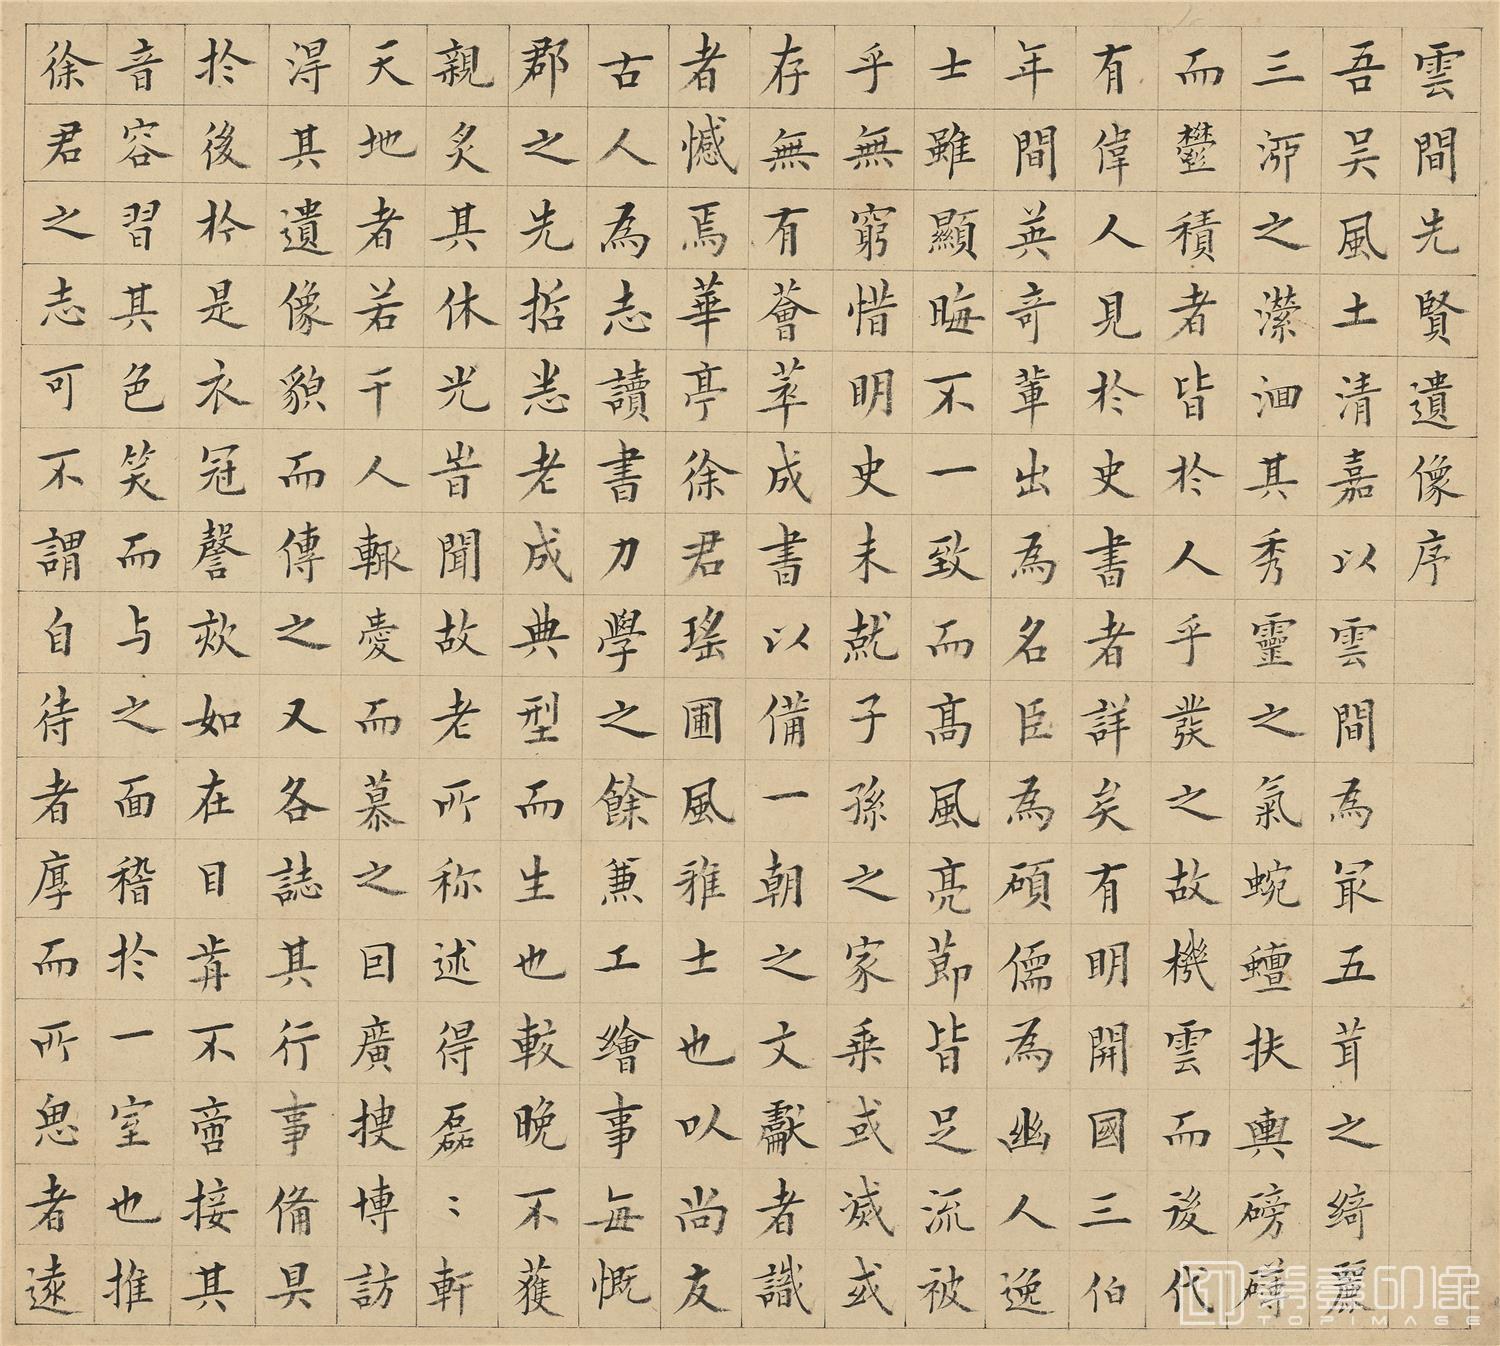 雲間先賢遺像序
吾吴風土清嘉以雲間為冣五茸之綺麗
三泖之瀠洄其秀靈之氣蜿蟺扶輿磅礴
而鬱積者皆於人乎發之故機雲而後代
有偉人見於史書者詳矣有明開國三伯
年間英奇輩出為名臣為碩儒為幽人逸
士雖顯晦不一致而髙風亮節皆足流被
乎無窮惜明史未就子孫之家乗或滅或
存無有薈萃成書以備一朝之文獻者識
者憾焉華亭徐君瑤圃風雅士也以尚友
古人為志讀書力學之餘兼工繪事每慨
郡之先哲悉老成典型而生也較晚不獲
親炙其休光昔聞故老所称述得磊〻軒
天地者若干人輒愛而慕之囙廣搜博訪
淂其遺像貌而傳之又各誌其行事俻具
扵後扵是衣冠謦欬如在目歬不啻接其
音容習其色笑而与之面稽於一室也推
徐君之志可不謂自待者厚而所思者遠
TOPIMAGE